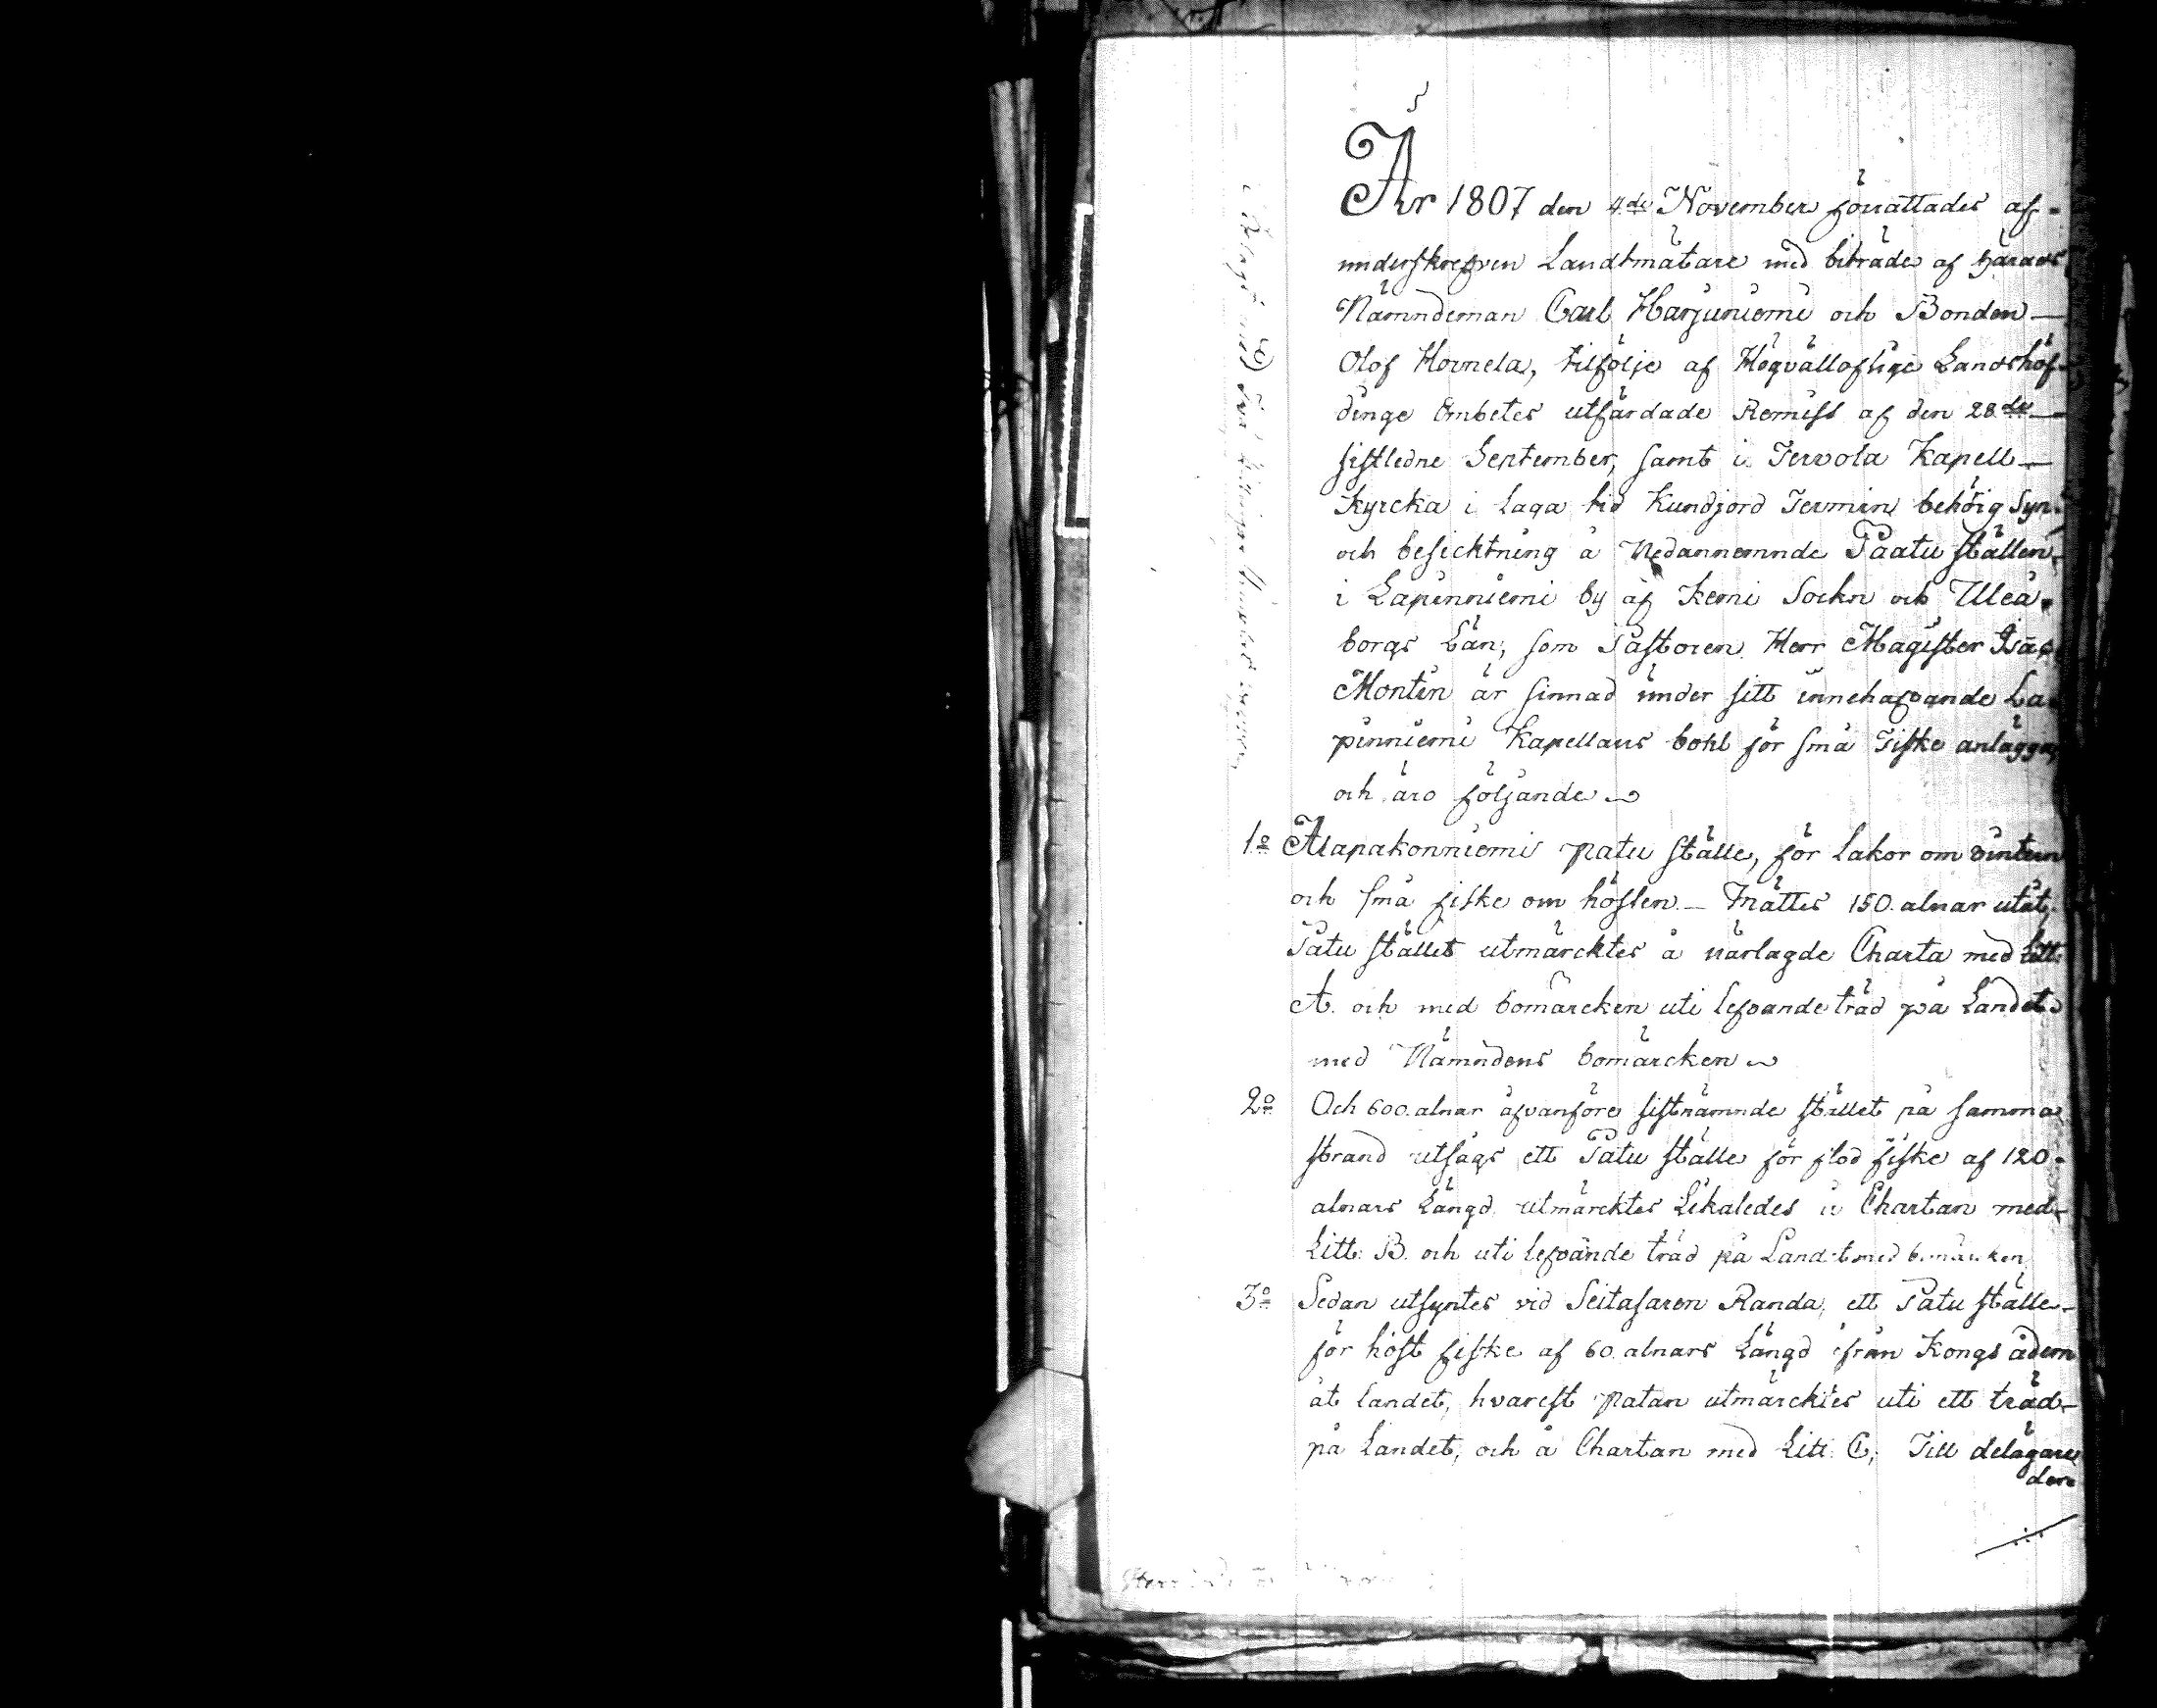 År 1807 den 4de November förrättades af
underskrefven Landtmätare med biträde af Härads
Nämndeman Carl Harjuniemi och Bonden
Olof Hornela, tilfölje af Högvälloflige Landshöf-
dinge Embetes utfärdade Remiss af den 28de
sistledne September, samt i Tervola Kapell
Kyrcka i Laga tid Kundgjord Termin behörig Syn
och besicktning å Nedannemnde Paatu ställen
i Lapinniemi by af Kemi Sockn och Uleå-
borgs Län, som Pastoren Herr Magister
Montin är sinnad under sitt innehafvande La-
pinniemi Kapellans bohl för små Fiske anlägga,
och äro följande
1o Alapakonniemi patu ställe, för Lakor om vintern
och små fiske om hösten. Mättes 150. alnar utåt,
Patu stället utmärcktes å närlagde Charta med Litt.
A. och med bomärcken uti lefvande träd på Landet
med Nämndens bomärcken
2o Och 600. alnar åfvanföre sistnämnde stället på samma
strand utsågs ett Patu ställe för flod fiske af 120.
alnars Längd utmärcktes Likaledes å Chartan med
Litt: B. och uti lefvande träd på Landet med bomärcken
3o Sedan utsyntes vid Seitasaren Randa, ett Patu ställe
för höst fiske af 60. alnars Längd ifrån Kongs ådern
åt landet, hvarest patan utmärcktes uti ett träd
på Landet, och å Chartan med Litt. C; Till delägare